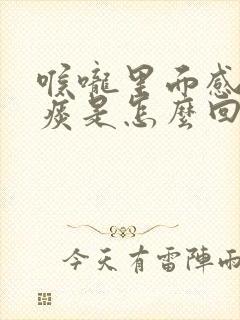 喉嚨里而感
痰是怎麼回
今天有雷陣雨